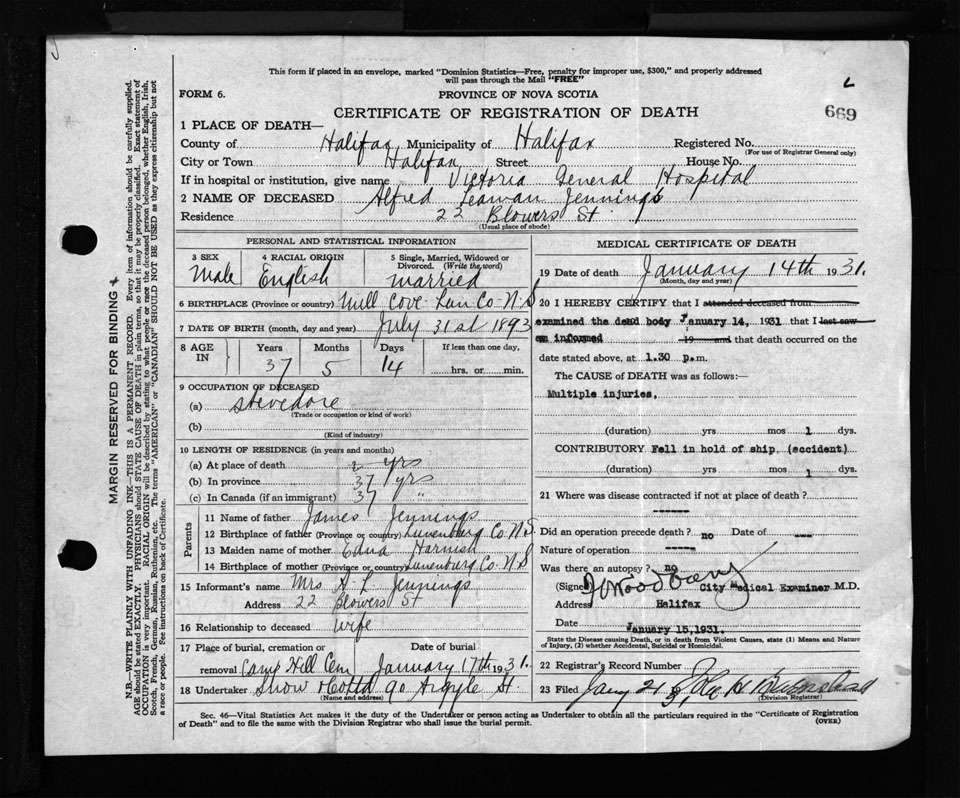 This form if placed in an envelope, marked "Dominion Statistics—Free, penalty for improper use, $300," and properly addressed
will pass through the Mail "FREE"
FORM 6.
PROVINCE OF NOVA SCOTIA
CERTIFICATE OF REGISTRATION OF DEATH
669
1 PLACE OF DEATH—
County of Halifax Municipality of Halifax Registered No.
(For use of Registrar General only)
City or Town Halifax Street House No.
If in hospital or institution, give name Victoria General Hospital
2 NAME OF DECEASED Alfred Leaman Jennings
Residence 22 Blowers St.
(Usual place of abode)
MARGIN RESERVED FOR BINDING
N.B.—WRITE PLAINLY WITH UNFADING INK—THIS IS A PERMANENT RECORD. Every item of information should be carefully supplied.
AGE should be stated EXACTLY. PHYSICIANS should STATE CAUSE OF DEATH in plain terms, so that it may be properly classified. Exact statement of
OCCUPATION is very important. RACIAL ORIGIN will be described by stating to what people or race the deceased person belonged, whether English, Irish,
Scotch, French, German, Russian, Ruthenian, etc. The terms "AMERICAN" or "CANADIAN" SHOULD NOT BE USED as they express citizenship but not
a race or people. See instructions on back of Certificate.
PERSONAL AND STATISTICAL INFORMATION
3 SEX
Male
4 RACIAL ORIGIN
English
5 Single, Married, Widowed or
Divorced. (Write the word)
married
6 BIRTHPLACE (Province or country) Mill Cove Lun Co. N.S
7 DATE OF BIRTH (month, day and year) July 31st 1893
8 AGE IN
Years Months Days If less than one day.
37 5 14 hrs. or min.
9 OCCUPATION OF DECEASED
(a) Stevedore
(Trade or occupation or kind of work)
(b)
(Kind of industry)
10 LENGTH OF RESIDENCE (in years and months)
(a) At place of death 2 yrs
(b) In province 37 yrs
(c) In Canada (if an immigrant) 37 "
Parents
11 Name of father James Jennings
12 Birthplace of father (Province or country) Lunenburg Co. N.S
13 Maiden name of mother Edna Harnish
14 Birthplace of mother (Province or country) Lunenburg Co. N.S
15 Informant's name Mrs A. L. Jennings
Address 22 Blowers St
16 Relationship to deceased wife
17 Place of burial, cremation or Date of burial
removal Camp Hill Cem January 17th 1931.
18 Undertaker Snow & Co Ltd 90 Argyle St.
(Name and address)
MEDICAL CERTIFICATE OF DEATH
19 Date of death January 14th 1931.
(Month, day and year)
20 I HEREBY CERTIFY that I attended deceased from
examined the dead body January 14, 1931 that I last saw
am informed 19 and that death occurred on the
date stated above, at 1.30 p.m.
The CAUSE of DEATH was as follows:—
Multiple injuries.
(duration) yrs mos 1 dys.
CONTRIBUTORY Fell in hold of ship. (accident)
(duration) yrs mos 1 dys.
21 Where was disease contracted if not at place of death?
------
Did an operation precede death? no Date of ---
Nature of operation -----
Was there an autopsy? no
(Signed) City Medical Examiner M.D.
Address Halifax
Date January 15,1931.
State the Disease causing Death, or in death from Violent Causes, state (1) Means and Nature
of Injury, (2) whether Accidental, Suicidal or Homicidal.
22 Registrar's Record Number
23 Filed Jany 21 31
(Division Registrar)
Sec. 46—Vital Statistics Act makes it the duty of the Undertaker or person acting as Undertaker to obtain all the particulars required in the "Certificate of Registration
of Death" and to file the same with the Division Registrar who shall issue the burial permit.
(OVER)